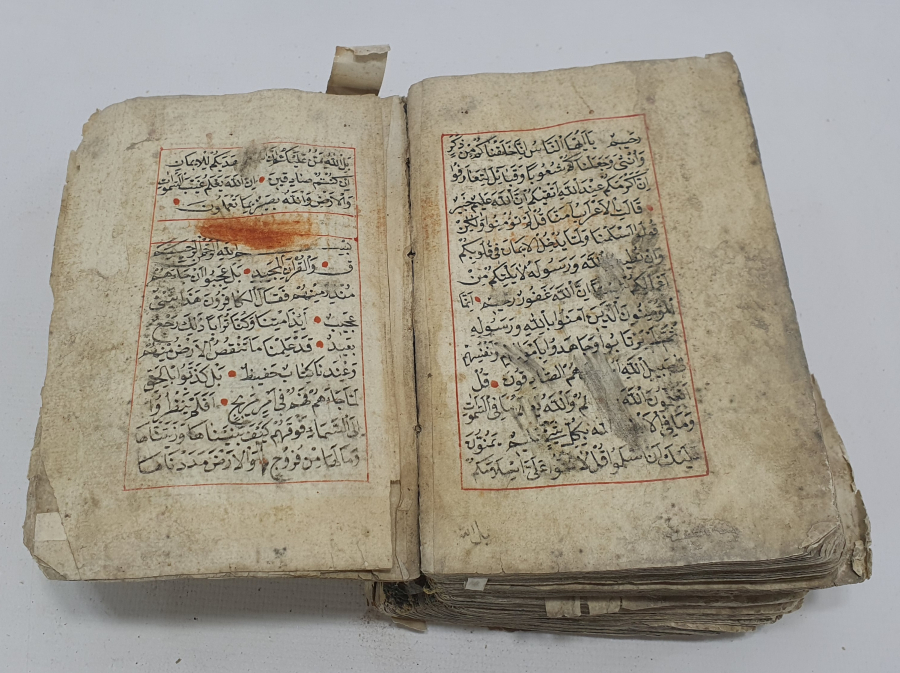 رحيم يا ايها الناس انا خلقناكم من ذكر
وانثى وجعلناكم شعوبا وقبائل لتعارفوا
ان اكرمكم عند الله اتقيكم ان الله عليم خبير
قالت الاعراب امنا قل لم تؤمنوا ولكن
قولوا اسلمنا ولما يدخل الايمان في قلوبكم
وان الله ورسوله لا يلتكم من
ان الله غفور رحيم انما
المؤمنون الذين امنوا بالله ورسوله
يرتابوا وجاهدوا باموالهم وانفسهم
سبيل الله هم الصادقون قل
اتعلمون الله والله ما في السموات
وما في بكل شيء يمنون
عليك ان اسلموا قل لا تمنوا علي اسلامكم
بل الله
بل الله يمن عليكم هديكم للايمان
ان كنتم صادقين ان الله يعلم غيب السموات
والارض والله بصير بما تعملون
الله الرحمن الرحيم
ق والقران المجيد بل عجبوا ان جاءهم
منذر منهم فقال الكافرون هذا شيء
عجيب ائذا متنا وكنا ترابا ذلك رجع
بعيد قد علمنا ما تنقص الارض منهم
وعندنا كتاب حفيظ بل كذبوا بالحق
لما جاءهم فهم في امر مريج افلم ينظروا
الى السماء فوقهم كيف بنيناها وزيناها
وما لها من فروج والارض مددناها